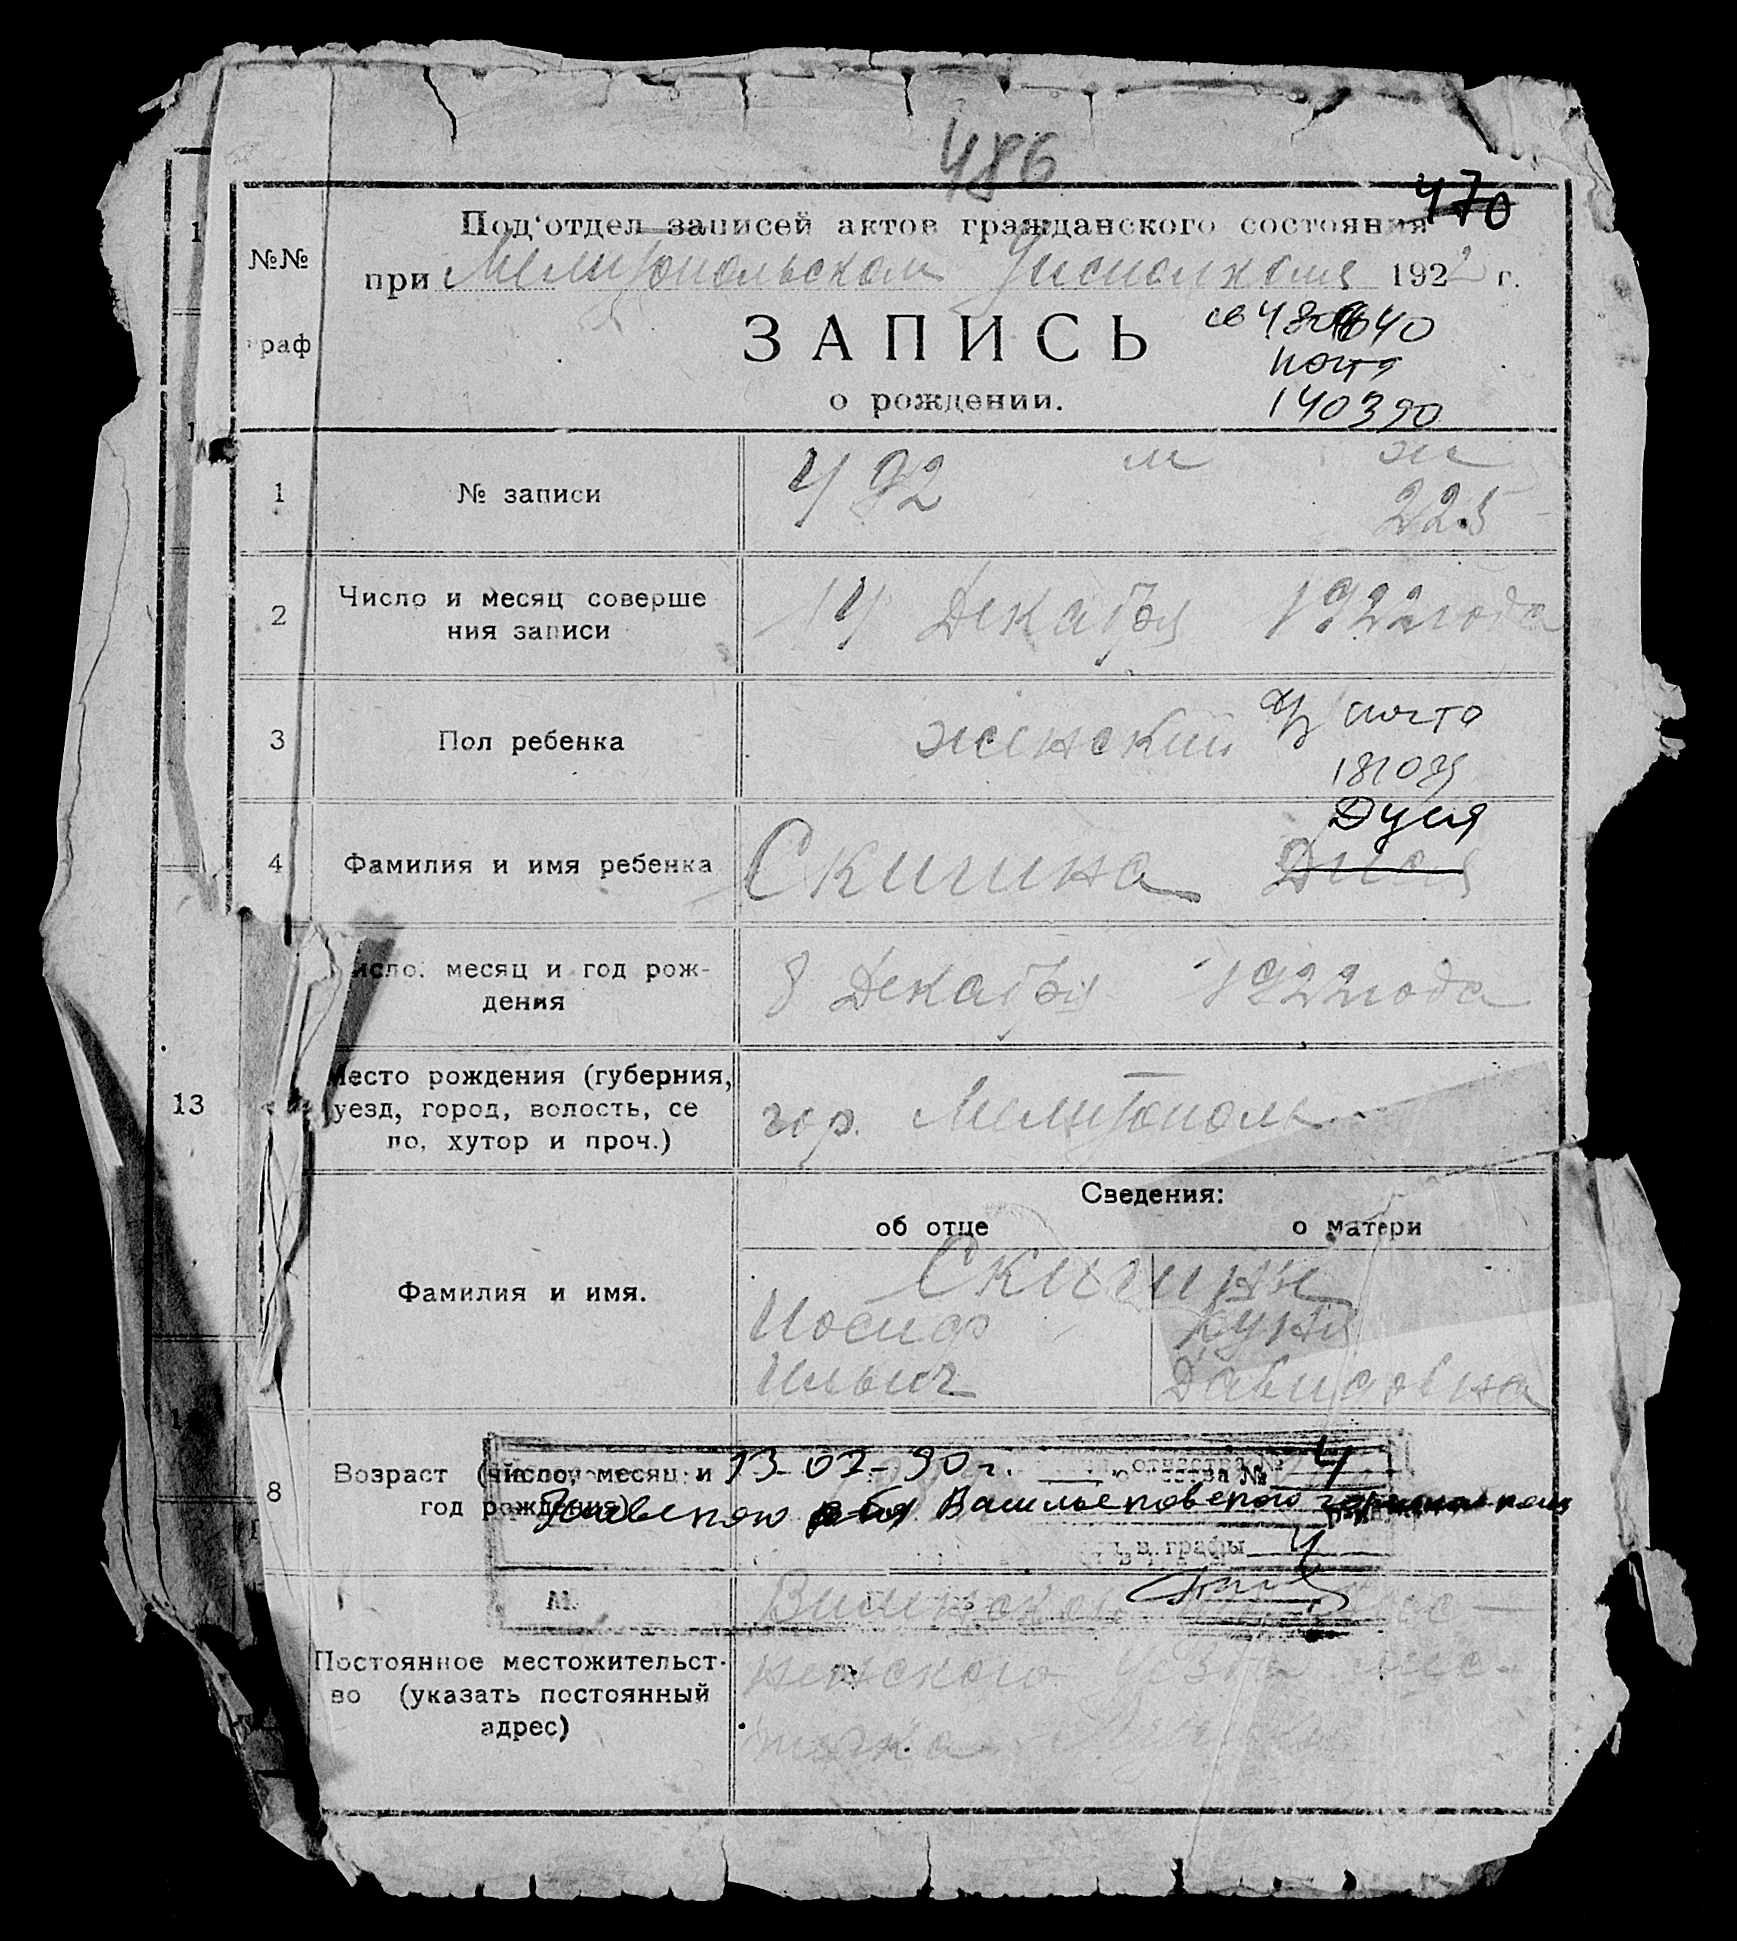 486
470
Под'отдел записей актов гражданского состояния
№№
граф
при Мелитопольском Уисполкоме 1922 г.
ЗАПИСЬ
о рождении.
почта
140390
1 № записи 492 м ж
225
2 Число и месяц соверше
ния записи
14 Декабря 1922 года
3 Пол ребенка женский
почта
Дуся
4 Фамилия и имя ребенка Скигина Дися
исло, месяц и год рож-
дения
8 Декабря 1922 года
13
Место рождения (губерния,
уезд, город, волость, се
ло, хутор и проч.)
гор. Мелитополь
Сведения:
об отце о матери
Фамилия и имя.
Скигины
Иосиф
Ильич
Давидовна
8 Возраст (число, месяц и
год рождения)
13-07-90 г. отчества № 4
Васильевского
в графы 4
М.
Постоянное местожительст-
во (указать постоянный
адрес)
Виленской
уезда мес-
течка